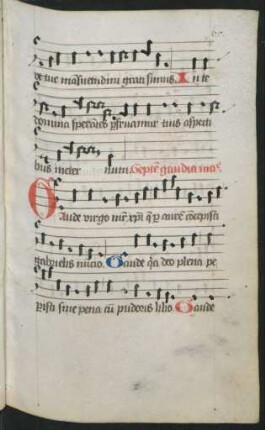 de tue mansuetudini gratissimus. In te
domina sperātes pfruamur tuis aspecti
bus in eter num. Septē gaudia ma
Gaude virgo mr̄ xpi q̄ p aurē cōcepisti
gabrielis nūcio. Gaude q̄a deo plena pe
peristi sine pena cū pudoris lilio. Gaude